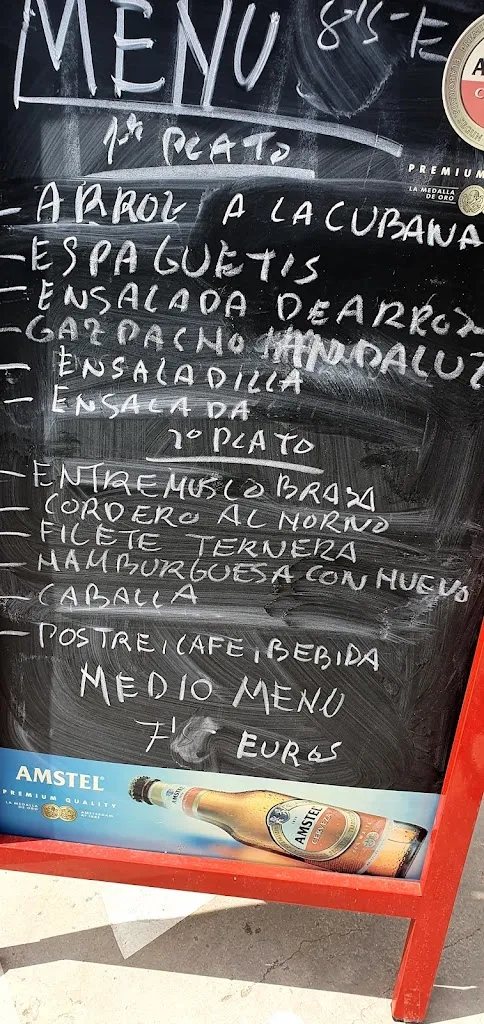 MENU 8'5-E
1er PLATO
- ARROZ A LA CUBANA
- ESPAGUETIS
- ENSALADA DE ARROZ
- GAZPACHO ANDALUZ
- ENSALADILLA
- ENSALADA
2º PLATO
- ENTREMUSLO BRASA
- CORDERO AL HORNO
- FILETE TERNERA
- HAMBURGUESA CON HUEVO
- CABALLA
- POSTRE, CAFE, BEBIDA
MEDIO MENU
7' EUROS
PREMIUM
LA MEDALLA
DE ORO
AMSTEL
PREMIUM QUALITY
LA MEDALLA
DE ORO
AMSTERDAM
AMSTEL
CERVEZA